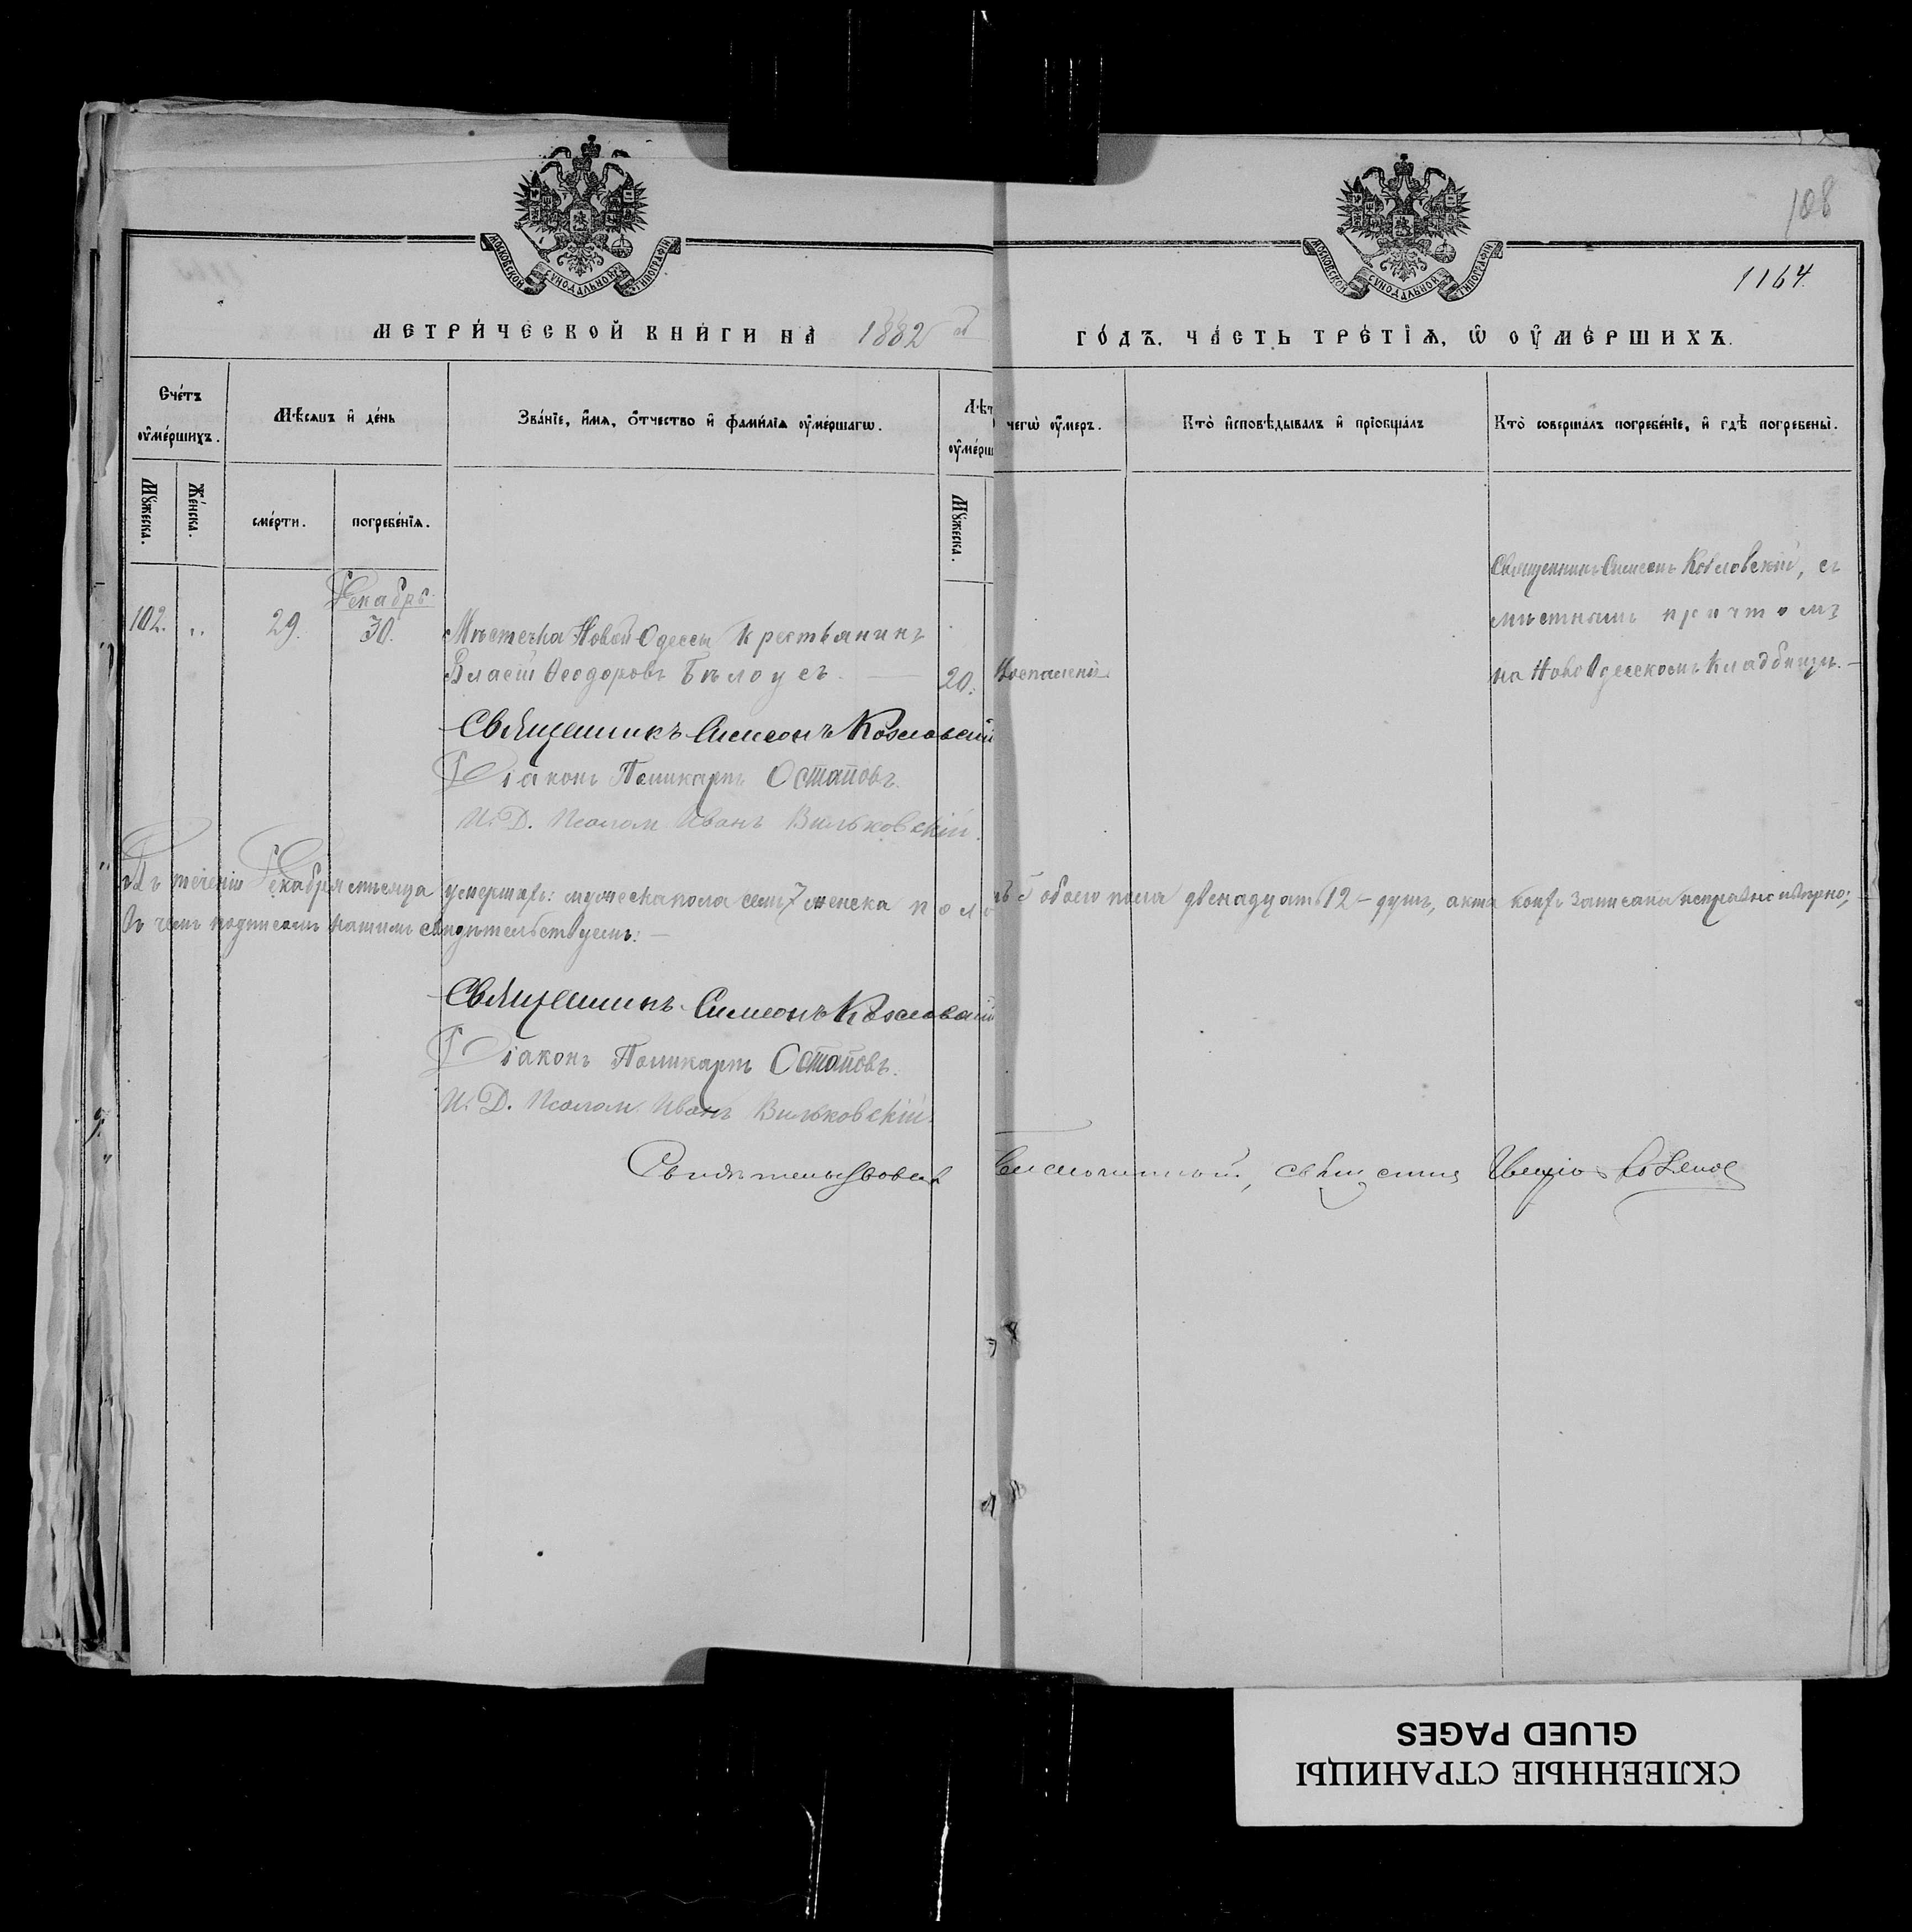 108
1164.
МОСКОВСКОЙ СѴНОДАЛЬНОЙ ТИПОГРАФІИ
МОСКОВСКОЙ СѴНОДАЛЬНОЙ ТИПОГРАФІИ
МЕТРИ́ЧЕСКОЙ КНИ́ГИ НА̀ 1882 й ГО́ДЪ. ЧА́СТЬ ТРЕ́ТІѦ, Ѡ҆ ОУ҆МЕ́РШИХЪ.
Сче́тъ оу҆ме́ршихъ.
Мѣ́сѧцъ и҆ де́нь
Зва́нїе, и҆́мѧ, ѻ҆́тчество и҆ фамилїѧ оу҆ме́ршагѡ.
Лѣт
оу҆ме́рш
чегѡ̀ оу҆́меръ.
Кто̀ и҆сповѣ́дывалъ и҆ прїѡбща́лъ
Кто̀ соверша́лъ погребе́нїе, и҆ гдѣ̀ погребены̀.
Мꙋ́жеска.
Же́нска.
сме́рти.
погребе́нїѧ.
Мꙋ́жеска.
Декабрь.
102. " 29. 30. Мѣстечка Новой-Одессы крестьянинъ
Власій Ѳеодоровъ Бѣлоусъ. — 20. Воспаленія.
Священникъ Симеонъ Козловскій, съ
мѣстнымъ причтомъ
на НовоОдесскомъ кладбищѣ. —
Священникъ Симеонъ Козловскій
Діаконъ Поликарпъ Остаповъ.
И. Д. Псалом. Иванъ Вильковскій.
Въ теченіи Декабря мѣсяца умершихъ: мужеска пола семь 7 женска пола 5 обоего пола двенадцать 12 – душъ, акты коихъ записаны исправно и вѣрно;
въ чемъ подписомъ нашимъ свидѣтельствуемъ: —
Священникъ Симеонъ Козловскій
Діаконъ Поликарпъ Остаповъ.
И. Д. Псалом. Иванъ Вильковскій.
Свидѣтельствовалъ Благочинный, священникъ
СКЛЕЕННЫЕ СТРАНИЦЫ
GLUED PAGES